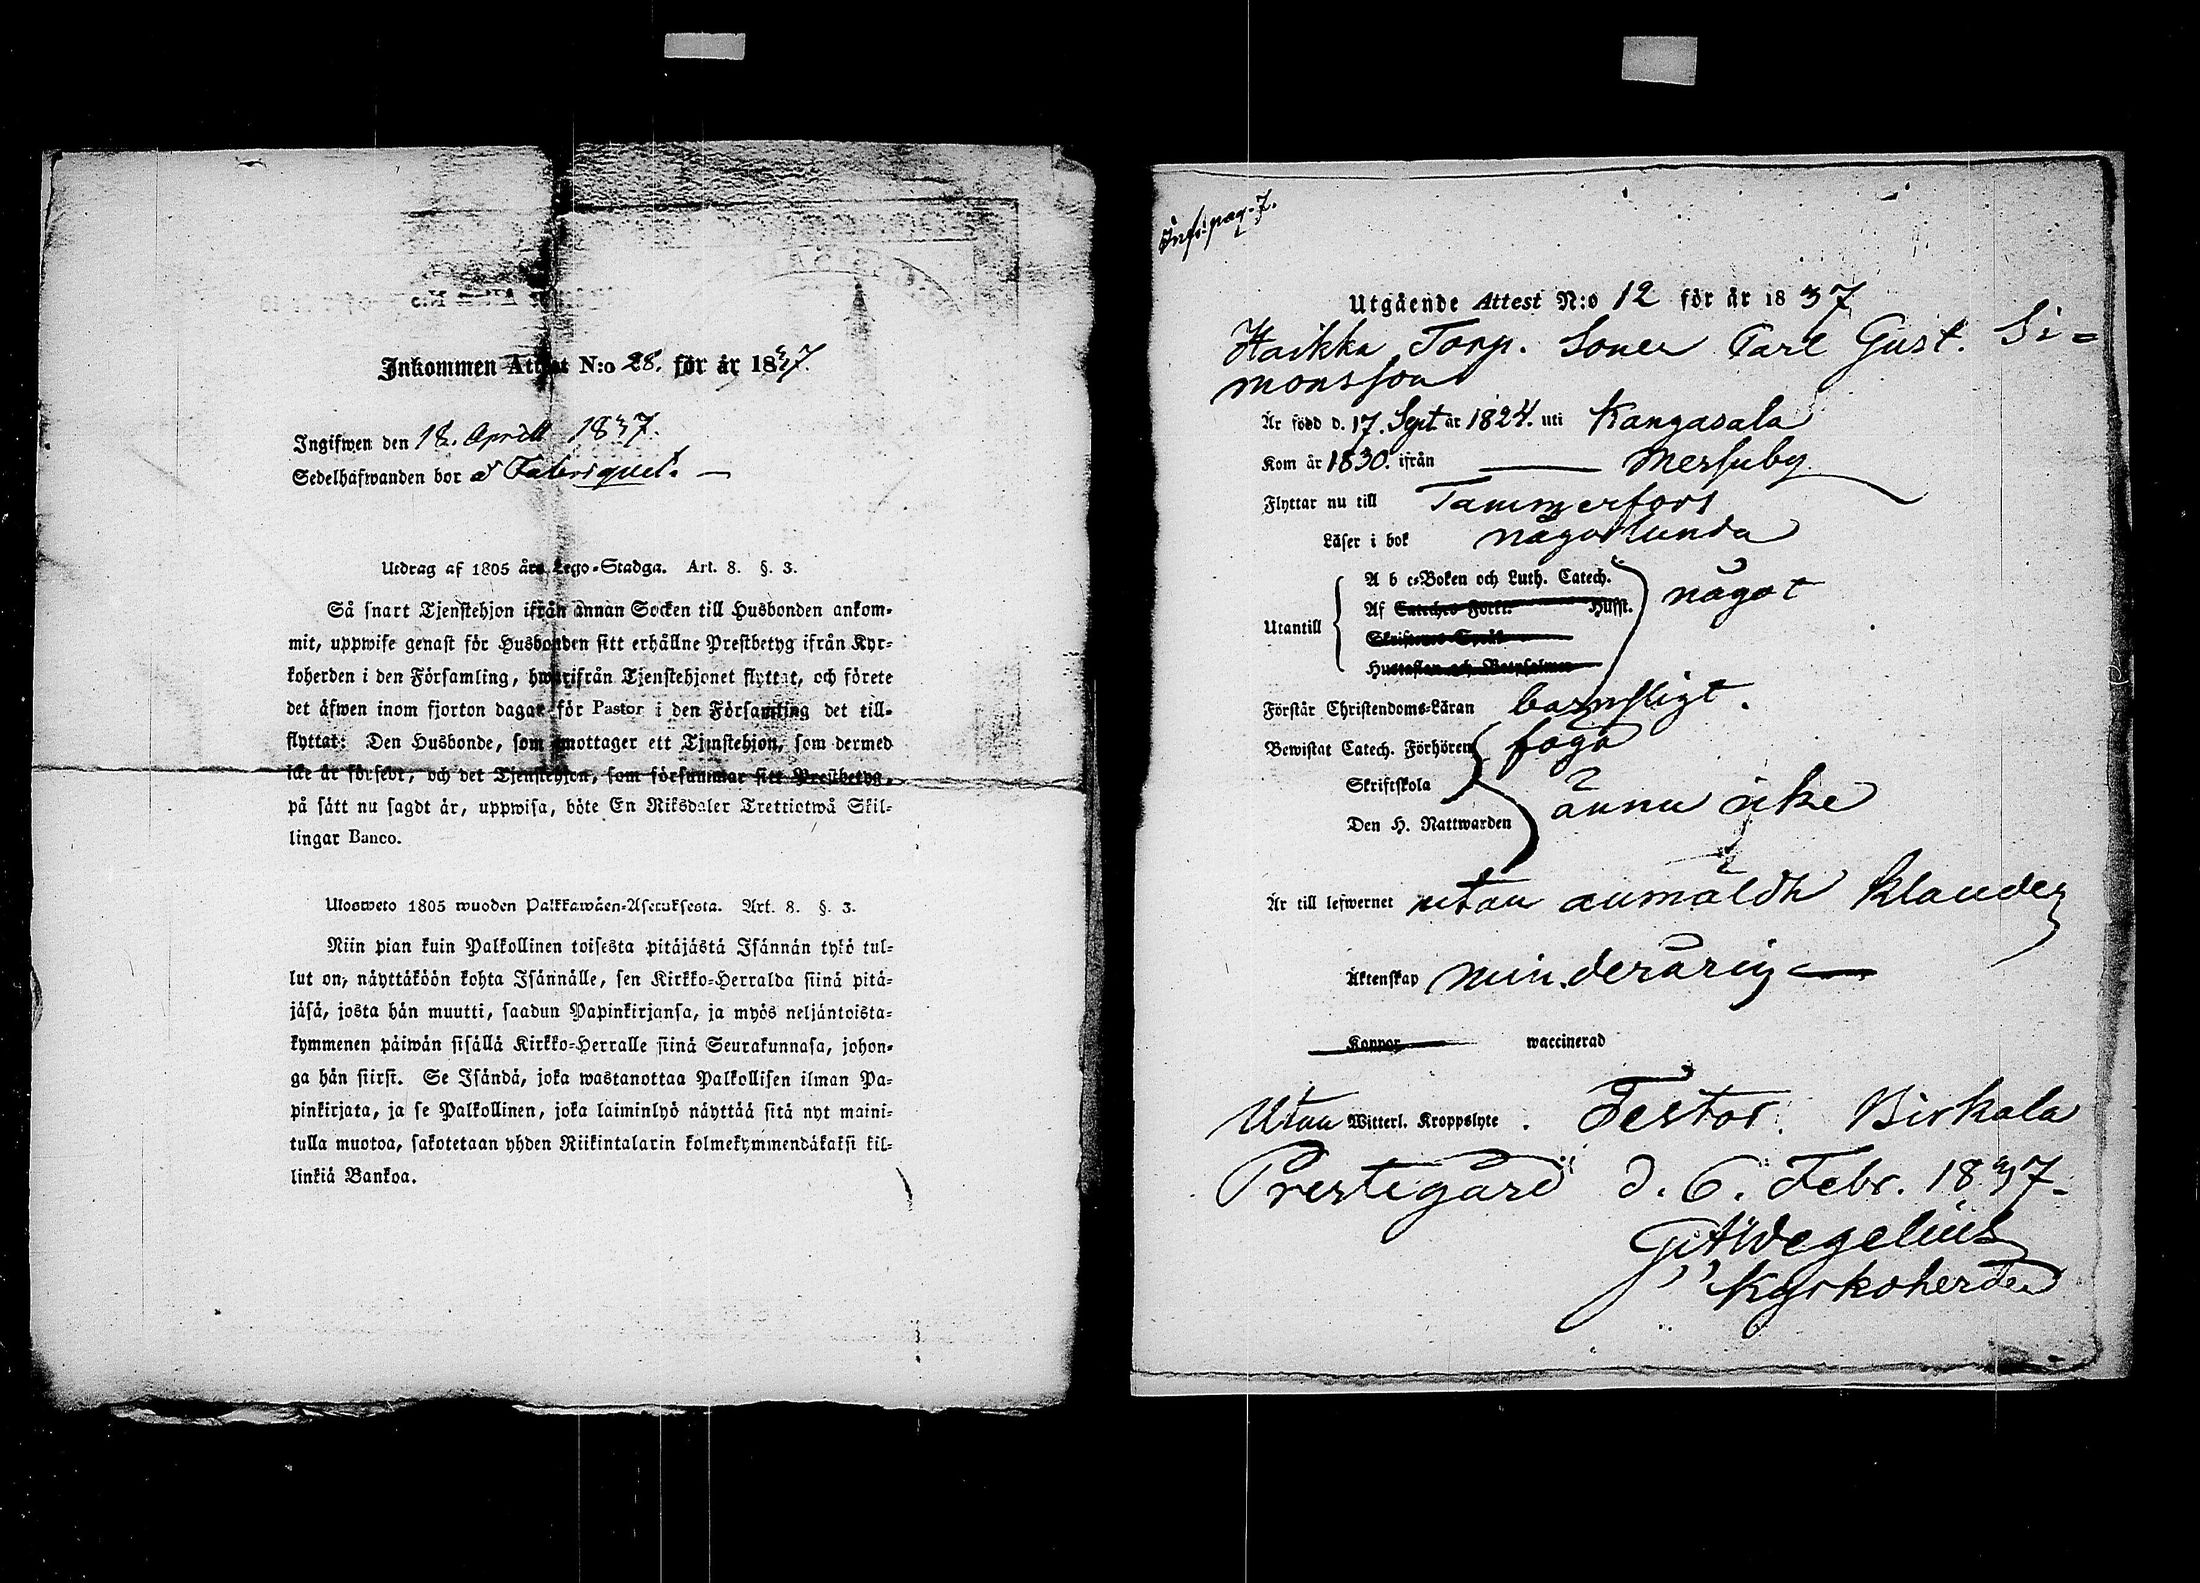 Inkommen Attest N:o 28. för år 1837.
Ingifwen den 18. Aprill 1837.
Sedelhafwanden bor å Fabriquet. —
Utdrag af 1805 års Lego-Stadga. Art. 8. §. 3.
Så snart Tjenstehjon ifrån annan Socken till Husbonden ankom-
mit, uppwise genast för Husbonden sitt erhållne Prestbetyg ifrån Kyr-
koherden i den Församling, hwarifrån Tjenstehjonet flyttat, och förete
det äfwen inom fjorton dagar för Pastor i den Församling det till-
flyttat: Den Husbonde, som emottager ett Tjenstehjon, som dermed
icke är försedt, och det Tjenstehjon, som försummar sitt Prestbetyg,
på sätt nu sagdt är, uppwisa, böte En Riksdaler Trettiotwå Skil-
lingar Banco.
Ulosweto 1805 wuoden Palkkawäen-Asetuksesta. Art. 8. §. 3.
Niin pian kuin Palkollinen toisesta pitäjästä Isännän tykö tul-
lut on, näyttäköön kohta Isännälle, sen Kirkko-Herralda siinä pitä-
jäsä, josta hän muutti, saadun Papinkirjansa, ja myös neljäntoista-
kymmenen päiwän sisällä Kirkko-Herralle siinä Seurakunnasa, johon-
ga hän siirsi. Se Isändä, joka wastanottaa Palkollisen ilman Pa-
pinkirjata, ja se Palkollinen, joka laiminlyö näyttää sitä nyt maini-
tulla muotoa, sakotetaan yhden Riikintalarin kolmekymmendäkaksi kil-
linkiä Bankoa.
Inf. pag. 7.
Utgående Attest N:o 12 för år 1837
Haikka Torp. Sonen Carl Gust. Si=
monsson
Är född d. 17. Sept. år 1824. uti Kangasala
Kom år 1830. ifrån — Messuby
Flyttar nu till Tammerfors
Läser i bok någorlunda
A b c-Boken och Luth. Catech.
Utantill Af Hufst. något
Förstår Christendoms-Läran barnsligt.
Bewistat Catech. Förhören föga
Skriftskola
Den H. Nattwarden ännu icke
Är till lefwernet utan anmäldt klander
Äktenskap minderårig —
Koppor waccinerad
Utan Witterl. Kroppslyte. Testor. Birkala
Prestegård d. 6. Febr. 1837.
G A Wegelius
Kyrkoherden